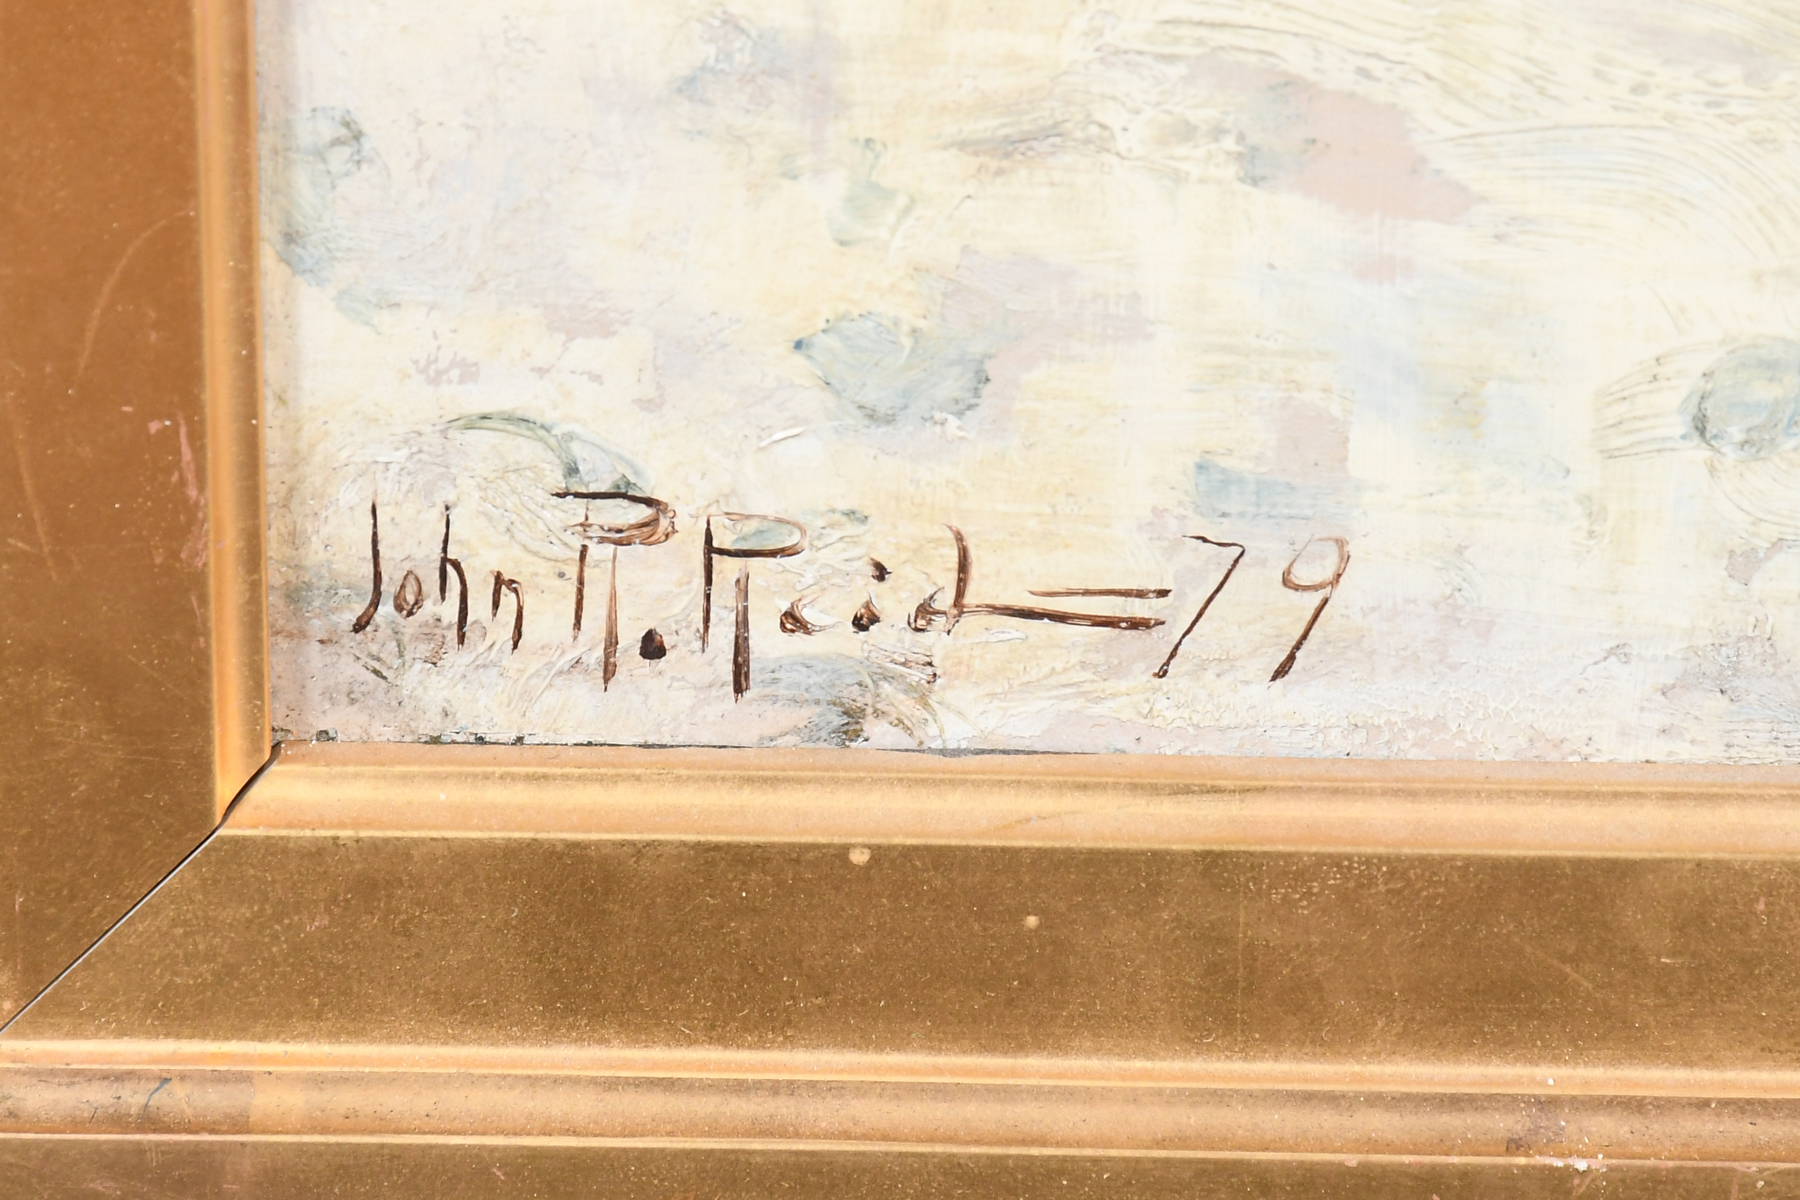 John R. Reid = 79